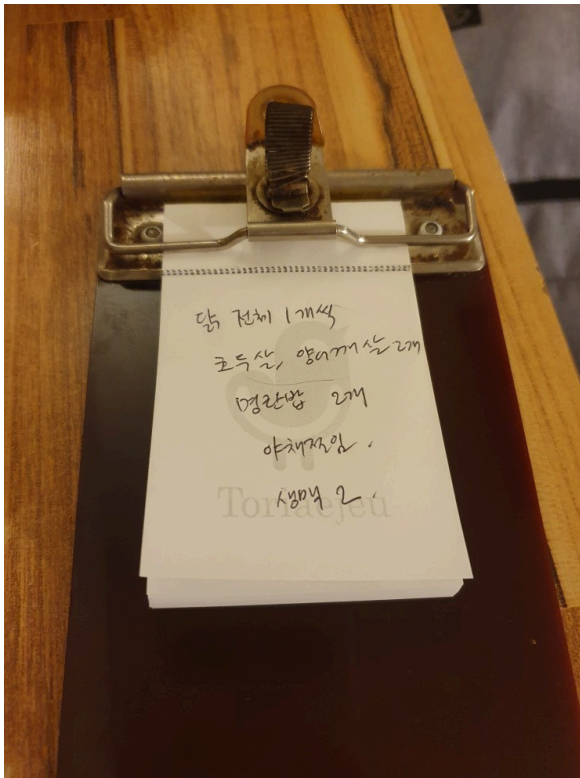 닭 전체 1개씩
초두살, 양어깨살 2개
명란밥 2개
야채찜임.
생맥 2.
Toriaejeu